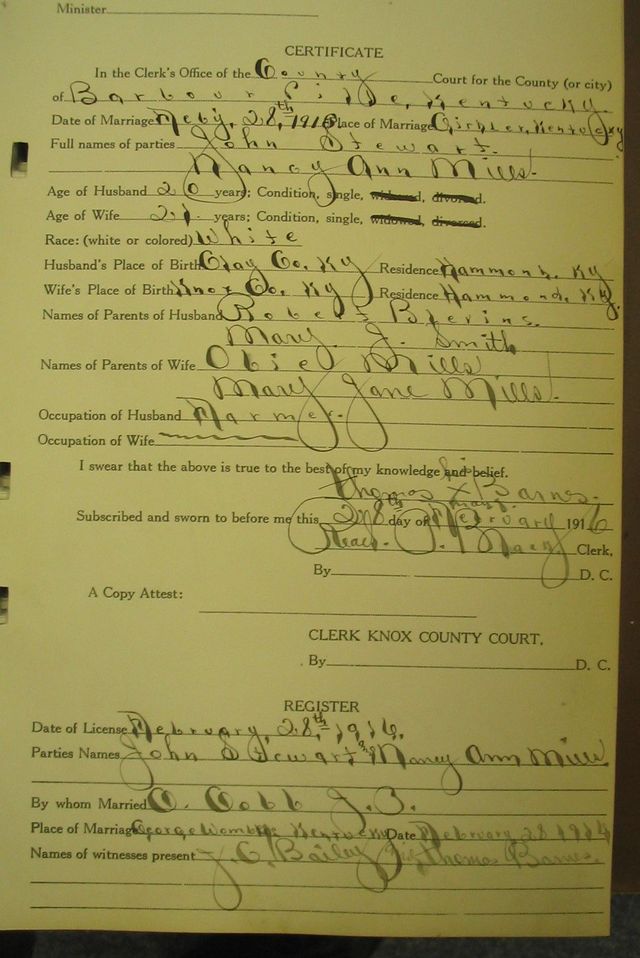 Minister
CERTIFICATE
In the Clerk's Office of the County Court for the County (or city)
of Barbourville, Kentucky.
Date of Marriage Feby, 28,th 1916 Place of Marriage Kentucky
Full names of parties John Stewart.
Nancy Ann Mills.
Age of Husband 20 years; Condition, single, widowed, divorced.
Age of Wife 21. years; Condition, single, widowed, divorced.
Race: (white or colored) White
Husband's Place of Birth Clay Co. Ky Residence Hammond, Ky
Wife's Place of Birth Knox Co. Ky Residence Hammond, Ky.
Names of Parents of Husband Robert
Mary J. Smith
Names of Parents of Wife Obie Mills
Mary Jane Mills.
Occupation of Husband Farmer.
Occupation of Wife
I swear that the above is true to the best of my knowledge and belief.
his
Thomas X Barnes.
mark.
Subscribed and sworn to before me this 28th day of February 1916
Clerk,
By D. C.
A Copy Attest:
CLERK KNOX COUNTY COURT.
By D. C.
REGISTER
Date of License February, 28,th 1916.
Parties Names John Stewart & Nancy Ann Mills
By whom Married C. Cobb J.P.
Place of Marriage George Kentucky Date February 28 1916
Names of witnesses present J. C. Bailey Thomas Barnes.